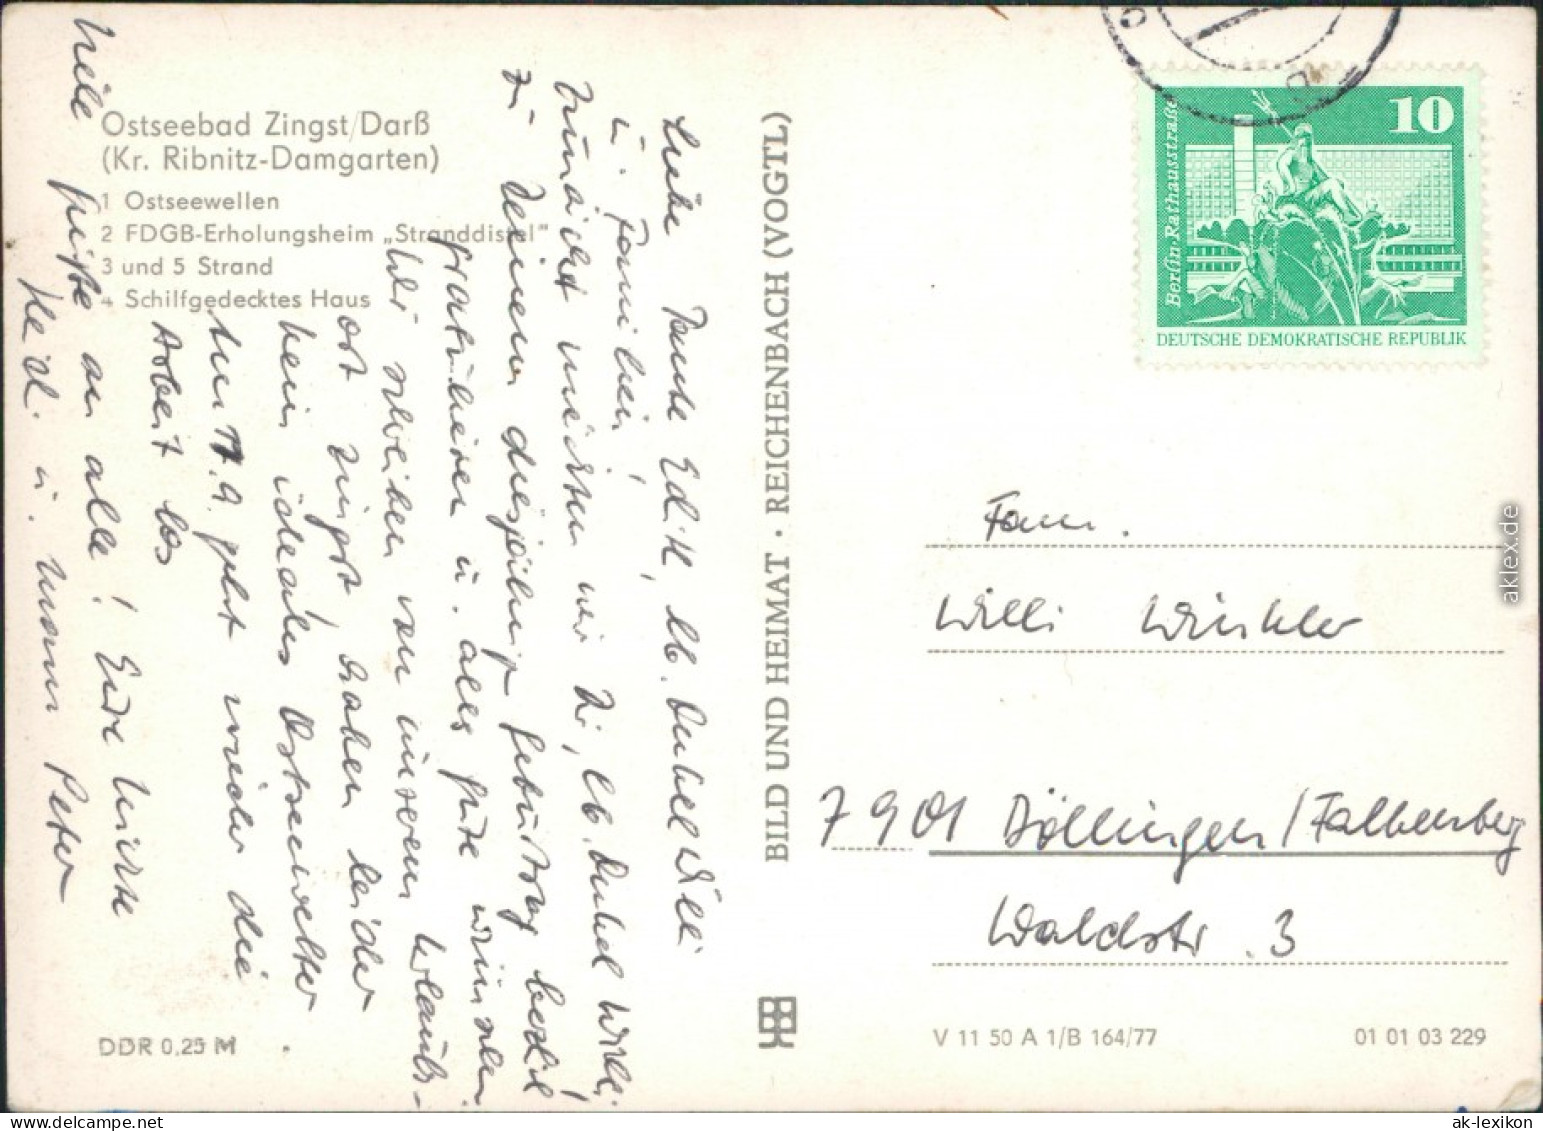 Ostseebad Zingst/Darß
(Kr. Ribnitz-Damgarten)
1 Ostseewellen
2 FDGB-Erholungsheim „Stranddistel"
3 und 5 Strand
4 Schilfgedecktes Haus
Liebe Tante Edith, lb. Onkel Willi
u. Familien!
Zunächst möchten wir Dir, lb. Onkel Willi,
zu Deinem diesjährig. Geburtstag herzl.
gratulieren u. alles Gute wünschen!
Wir schreiben von unserem Urlaubs-
ort Zingst, haben leider
kein ideales Ostseewetter
Am 17.9. geht wieder die
Arbeit los
Viele Grüße an alle! Eure
Heidi u. Mann Peter
DDR 0,25 M
BILD UND HEIMAT · REICHENBACH (VOGTL)
Berlin, Rathausstraße
10
DEUTSCHE DEMOKRATISCHE REPUBLIK
Fam.
Willi Winkler
7901 Döllingen/Falkenberg
Waldstr. 3
V 11 50 A 1/B 164/77
01 01 03 229
aklex.de
ak-lexikon